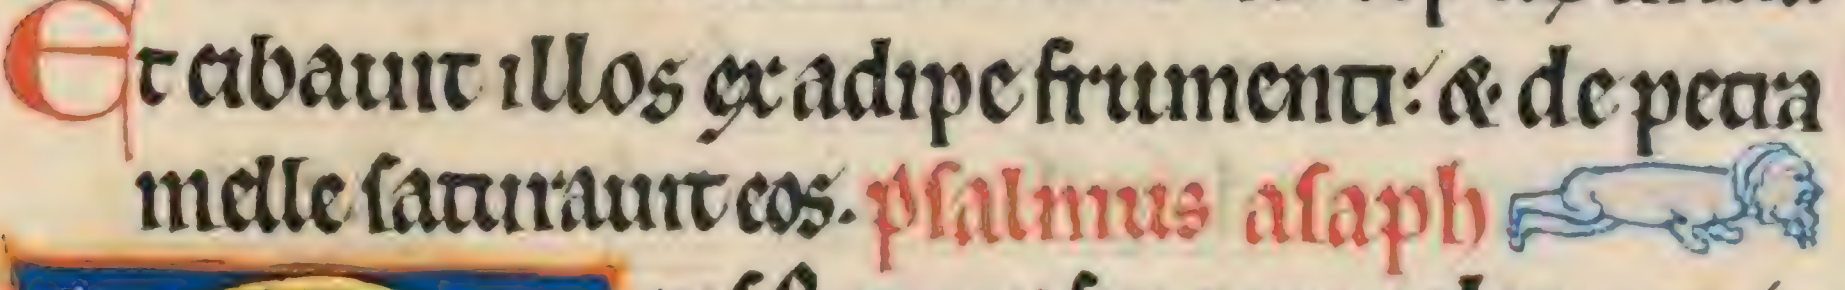 Et cibauit illos ex adipe frumenti: & de petra
melle saturauit eos. psalmus asaph